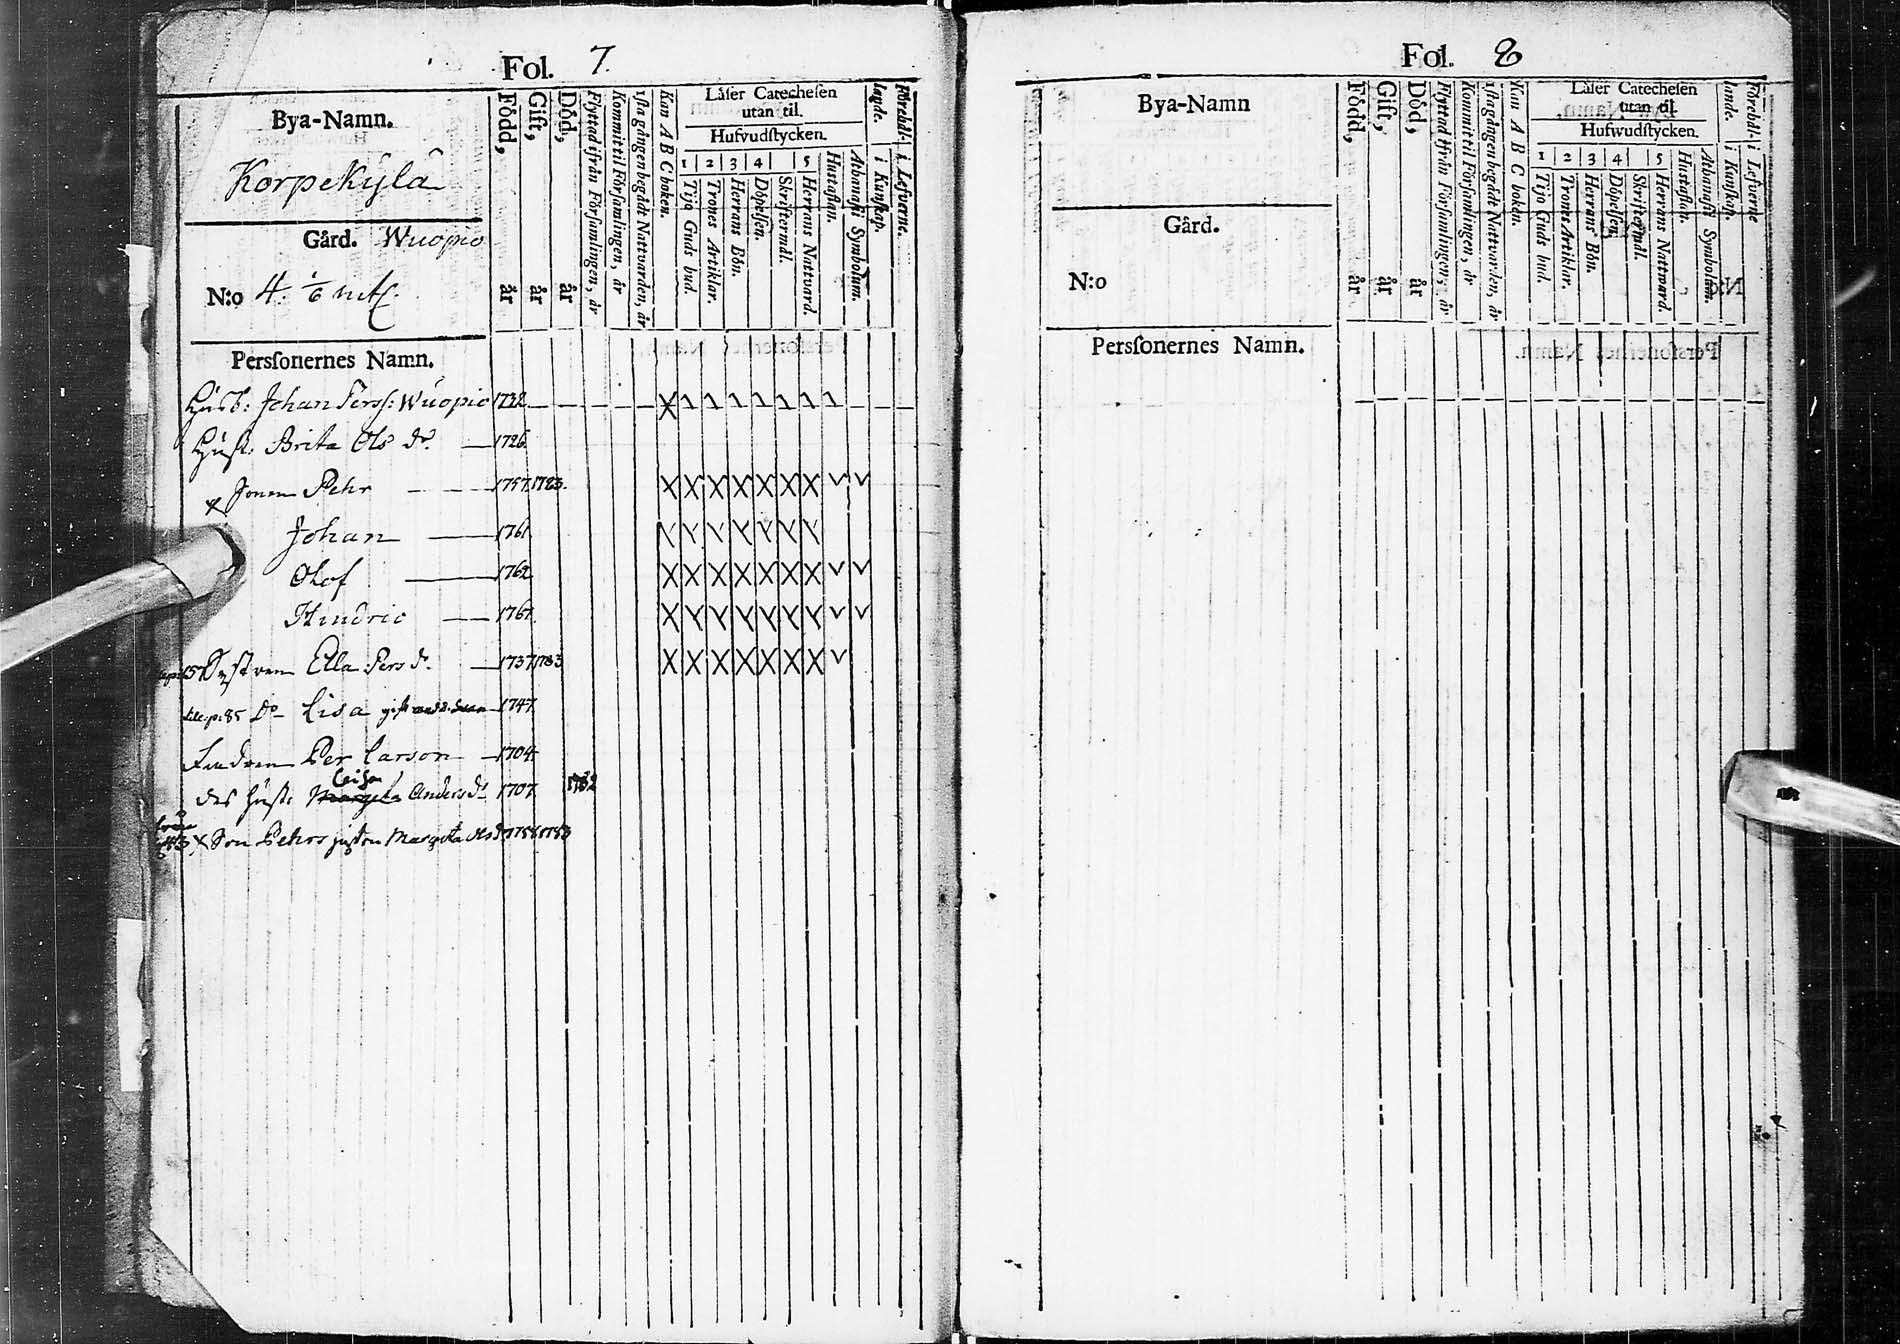 Fol. 7.
Bya-Namn.
Korpekÿlä
Gård. Wuopio
N:o 4. 1/6 mtl.
Personernes Namn.
Född, år
Gift, år
Död, år
Flyttad ifrån Församlingen, år
Kommit til Församlingen, år
1sta gången begådt Nattvarden, år
Kan A B C boken.
Läser Catechesen
utan til.
Hufvudstycken.
1 2 3 4 5
Tijo Guds bud.
Trones Artiklar.
Herrans Bön.
Döpelsen.
Skriftermål.
Herrans Nattvard.
Hustaflan.
Athanasii Symbolum.
Förehål-
lande.
i Kunskap.
i Lefverne.
Husb: Johan Perss: Wuopio 1732
Hust: Brita Ols dr 1726
x Sonen Pehr 1757. 1783.
Johan 1761
Olof 1762
Hindric 1767
Systren Ella Pers dr 1737 1783
p: 85 Do Lisa gift 1747
Per Larson 1704
des hust: Margeta Caisa Anders dr 1707 1782
x Son Pehrs Margeta Ols dr 1758 1783
Fol. 8
Bya-Namn
Gård.
N:o
Personernes Namn.
Född, år
Gift, år
Död, år
Flyttad ifrån Församlingen, år
Kommit til Församlingen, år
1sta gången begådt Nattvarden, år
Kan A B C boken.
Läser Catechesen
utan til.
Hufwudstycken.
1 2 3 4 5
Tijo Guds bud.
Trones Artiklar.
Herrans Bön.
Döpelsen.
Skriftermål.
Herrans Nattvard.
Hustaflan.
Athanasii Symbolum.
Förehål-
lande.
i Kunskap.
i Lefverne